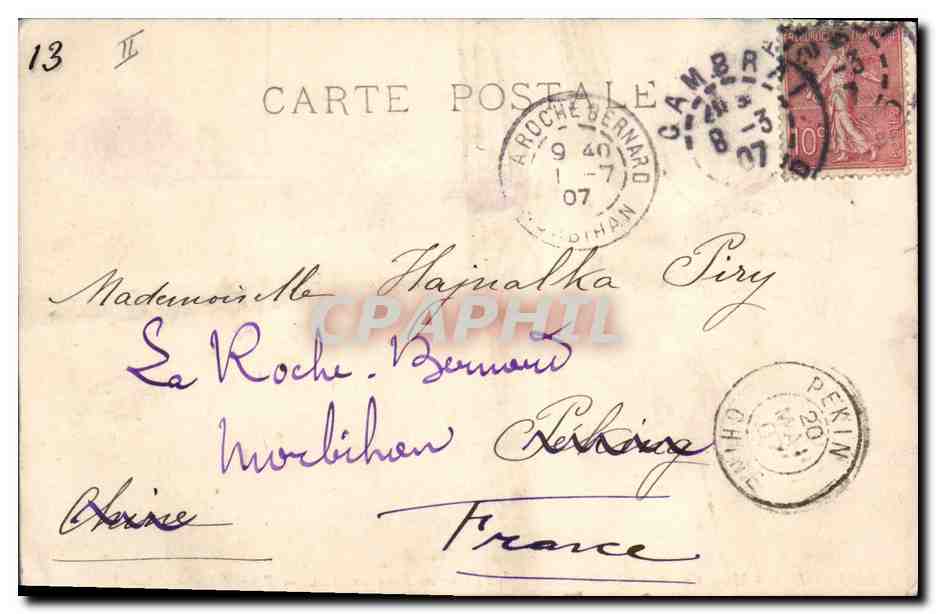 13 II
CARTE POSTALE
CAMBRAI
8 -3
07
10c
LA ROCHE BERNARD
9 40
1 -7
07
MORBIHAN
Mademoiselle Hajnalka Piry
CPAPHIL
La Roche-Bernard
Morbihan Peking
Chine
France
PEKIN
20
MAI
07
CHINE